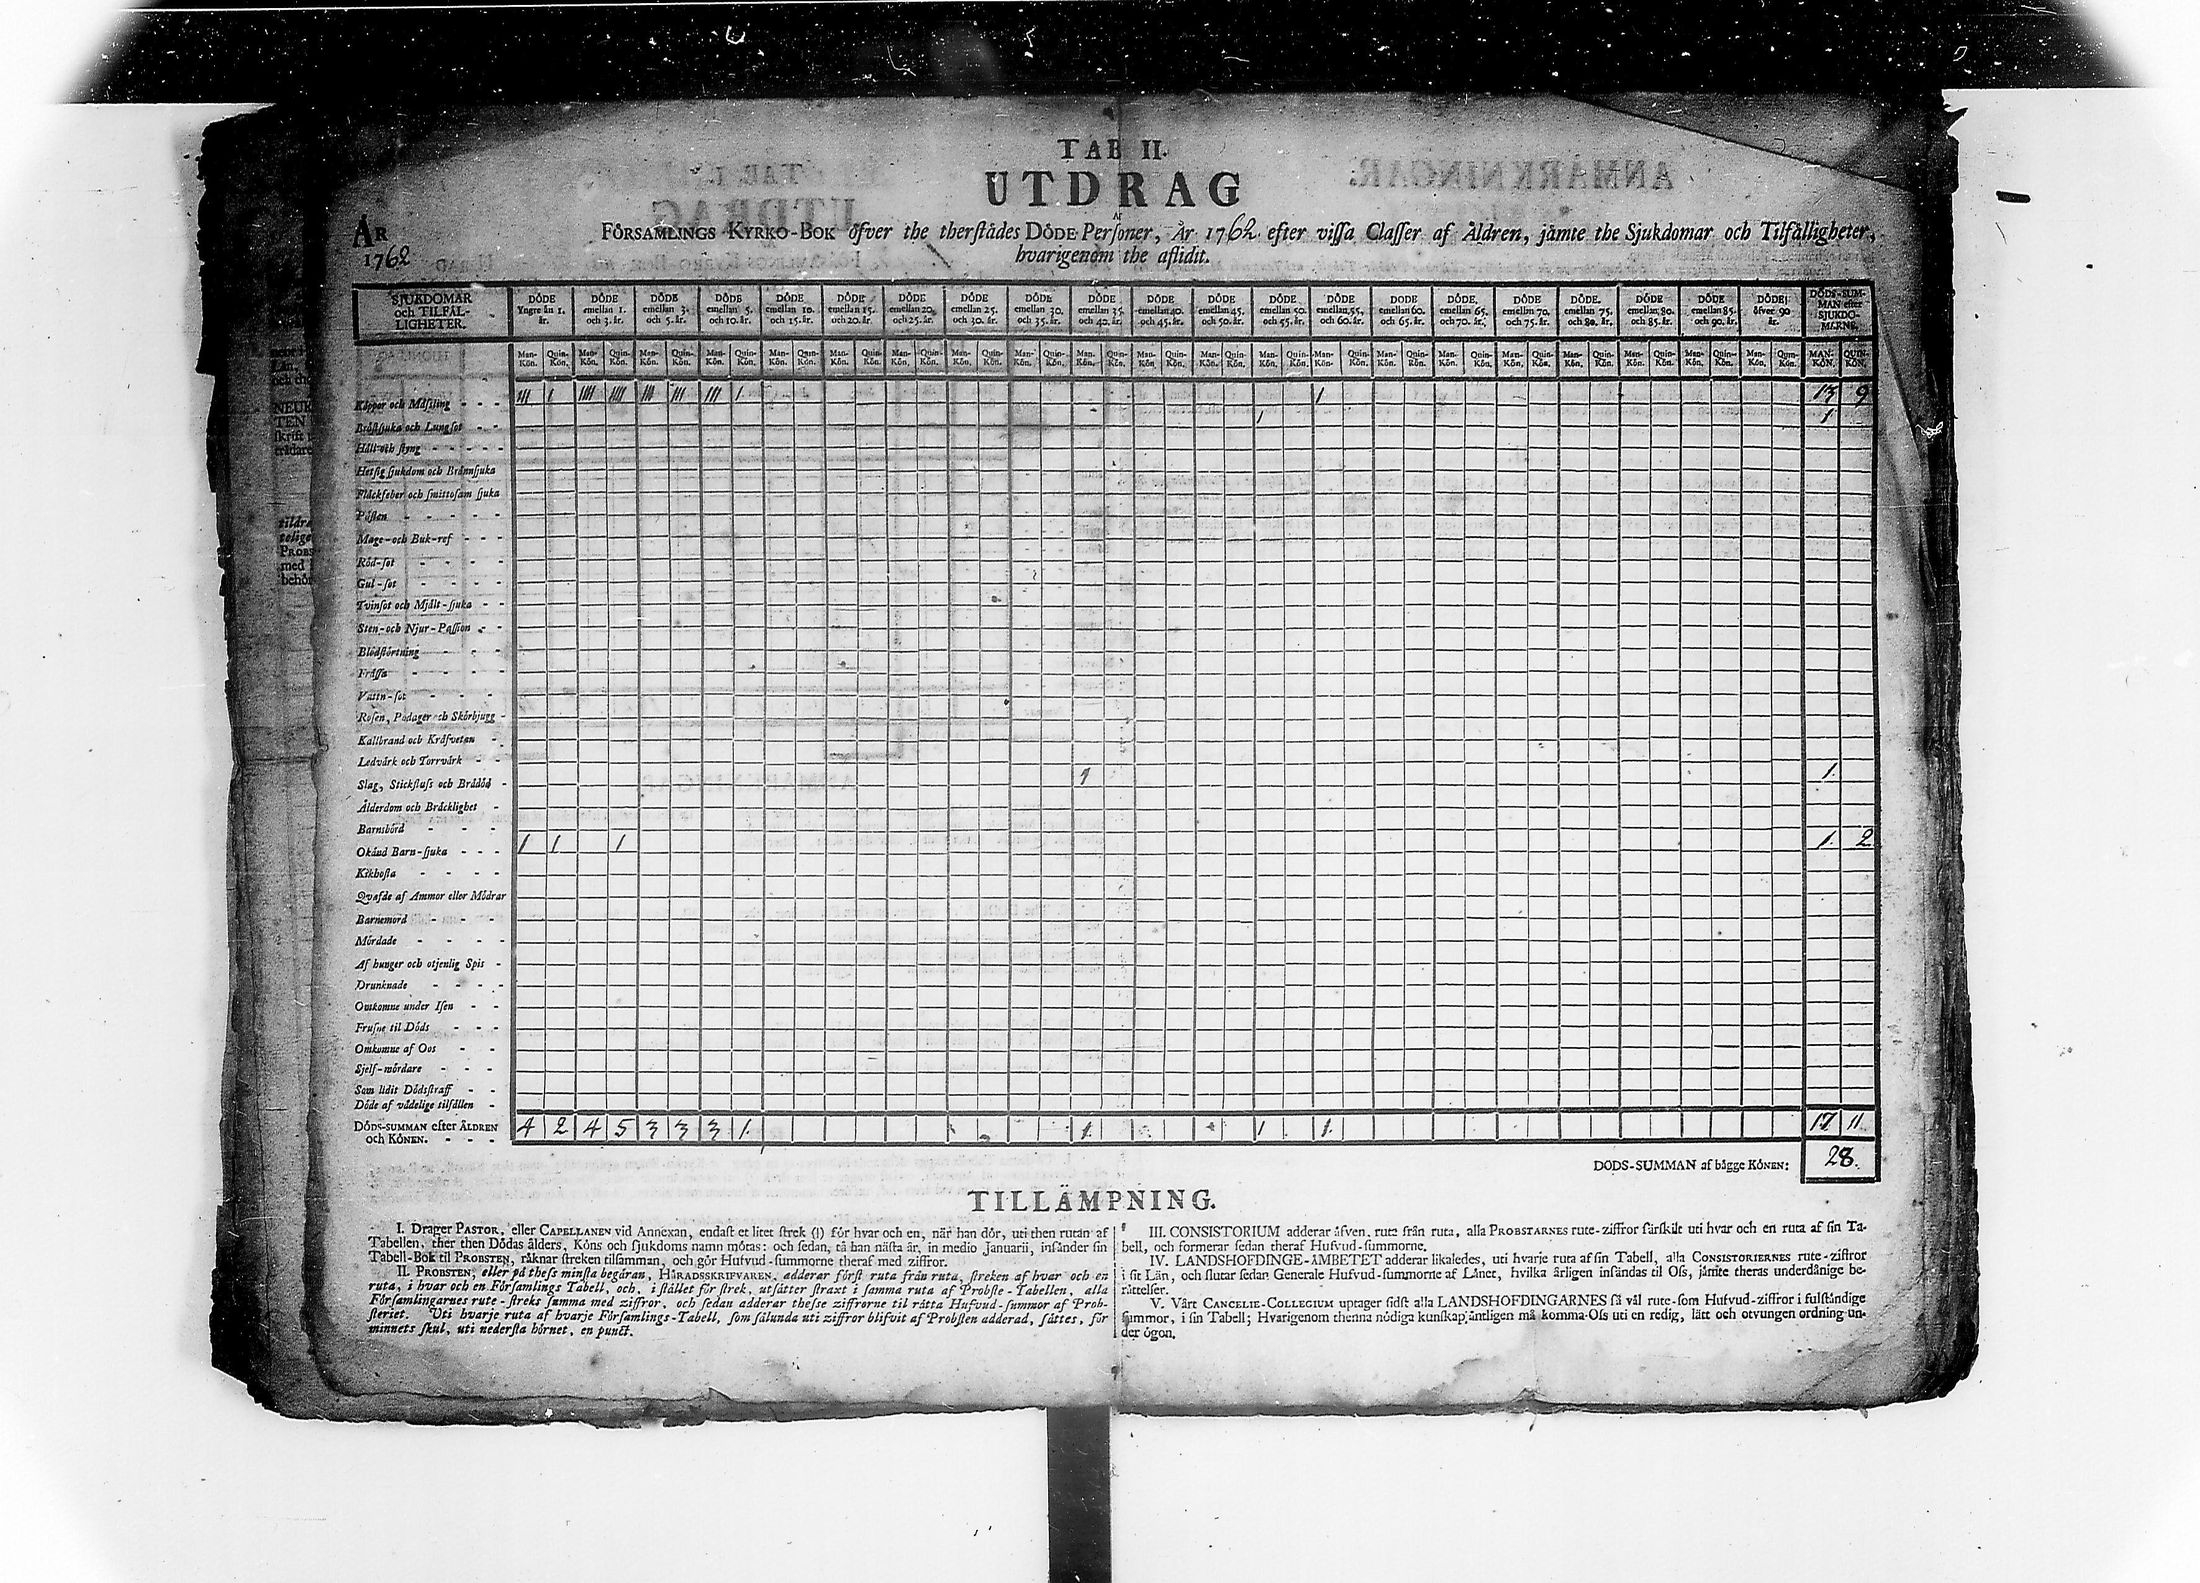 TAB II.
UTDRAG
AF
ÅR
1762
FÖRSAMLINGS KYRKO-BOK öfver the therstädes DÖDE Personer, År 1762 efter vissa Classer af Åldren, jämte the Sjukdomar och Tilfälligheter,
hvarigenom the aflidit.
SJUKDOMAR
och TILFÄL-
LIGHETER.
DÖDE Yngre än 1. år.
DÖDE emellan 1. och 3. år.
DÖDE emellan 3. och 5. år.
DÖDE emellan 5. och 10. år.
DÖDE emellan 10. och 15. år.
DÖDE emellan 15. och 20. år.
DÖDE emellan 20. och 25. år.
DÖDE emellan 25. och 30. år.
DÖDE emellan 30. och 35. år.
DÖDE emellan 35. och 40. år.
DÖDE emellan 40. och 45. år.
DÖDE emellan 45. och 50. år.
DÖDE emellan 50. och 55. år.
DÖDE emellan 55. och 60. år.
DÖDE emellan 60. och 65. år.
DÖDE emellan 65. och 70. år.
DÖDE emellan 70. och 75. år.
DÖDE emellan 75. och 80. år.
DÖDE emellan 80. och 85. år.
DÖDE emellan 85. och 90. år.
DÖDE öfver 90 år.
DÖDS-SUM-MAN efter SJUKDO-MARNE.
Man-Kön. Quin-Kön. Man-Kön. Quin-Kön. Man-Kön. Quin-Kön. Man-Kön. Quin-Kön. Man-Kön. Quin-Kön. Man-Kön. Quin-Kön. Man-Kön. Quin-Kön. Man-Kön. Quin-Kön. Man-Kön. Quin-Kön. Man-Kön. Quin-Kön. Man-Kön. Quin-Kön. Man-Kön. Quin-Kön. Man-Kön. Quin-Kön. Man-Kön. Quin-Kön. Man-Kön. Quin-Kön. Man-Kön. Quin-Kön. Man-Kön. Quin-Kön. Man-Kön. Quin-Kön. Man-Kön. Quin-Kön. Man-Kön. Quin-Kön. Man-Kön. Quin-Kön. MAN-KÖN. QUIN-KÖN.
Koppor och Mässling - - - III I IIII IIII III III III I I 13 9
Bröstsjuka och Lungsot - - 1 1
Håll och styng - - - - -
Hetsig sjukdom och Brännsjuka
Fläckfeber och smittosam sjuka
Påsten - - - - -
Mage-och Buk-ref - - -
Röd-sot - - - -
Gul-sot - - - -
Tvinsot och Mjält-sjuka - -
Sten-och Njur-Passion - -
Blodstörtning - - -
Fråssa - - - -
Vattn-sot - - -
Rosen, Podager och Skörbjugg -
Kallbrand och Kräfvetan -
Ledvärk och Torrvärk - -
Slag, Stickfluss och Brådöd - 1 1.
Ålderdom och Bräcklighet -
Barnsbörd - - -
Okänd Barn-sjuka - - - 1 1 1 1. 2
Kikhosta - - - -
Qvafde af Ammor eller Mödrar
Barnemord - - -
Mördade - - - -
Af hunger och otjenlig Spis -
Drunknade - - - -
Omkomne under Isen - -
Frusne til Döds - - -
Omkomne af Oos - -
Sjelf-mördare - - -
Som lidit Dödsstraff - -
Döde af vådelige tilfällen -
DÖDS-SUMMAN efter ÅLDREN
och KÖNEN. - - - 4 2 4 5 3 3 3 1. 1. 1 1. 17 11
DÖDS-SUMMAN af bägge KÖNEN: 28.
TILLÄMPNING.
I. Drager PASTOR, eller CAPELLANEN vid Annexan, endast et litet strek (|) för hvar och en, när han dör, uti then rutan af
Tabellen, ther then Dödas ålders, Köns och sjukdoms namn mötas: och sedan, tå han nästa år, in medio Januarii, insänder sin
Tabell-Bok til PROBSTEN, räknar streken tilsamman, och gör Hufvud-summorne theraf med ziffror.
II. PROBSTEN, eller på thess minsta begäran, HÄRADSSKRIFVAREN, adderar först ruta från ruta, streken af hvar och en
ruta, i hvar och en Församlings Tabell, och, i stället för strek, utsätter straxt i samma ruta af Probste-Tabellen, alla
Församlingarnes rute-streks summa med ziffror, och sedan adderar thesse ziffrorne til rätta Hufvud-summor af Prob-
steriet. Uti hvarje ruta af hvarje Församlings-Tabell, som sålunda uti ziffror blifvit af Probsten adderad, sättes, för
minnets skul, uti nedersta hörnet, en punct.
III. CONSISTORIUM adderar äfven, ruta från ruta, alla PROBSTARNES rute-ziffror särskilt uti hvar och en ruta af sin Ta-
bell, och formerar sedan theraf Hufvud-summorne.
IV. LANDSHOFDINGE-ÄMBETET adderar likaledes, uti hvarje ruta af sin Tabell, alla CONSISTORIERNES rute-ziffror
i sit Län, och slutar sedan Generale Hufvud-summorne af Länet, hvilka årligen insändas til Oss, jämte theras underdånige be-
rättelser.
V. Vårt CANCELIE-COLLEGIUM uptager sidst alla LANDSHOFDINGARNES så väl rute-som Hufvud-ziffror i fulständige
summor, i sin Tabell; Hvarigenom thenna nödiga kunskap äntligen må komma Oss uti en redig, lätt och otvungen ordning un-
der ögon.